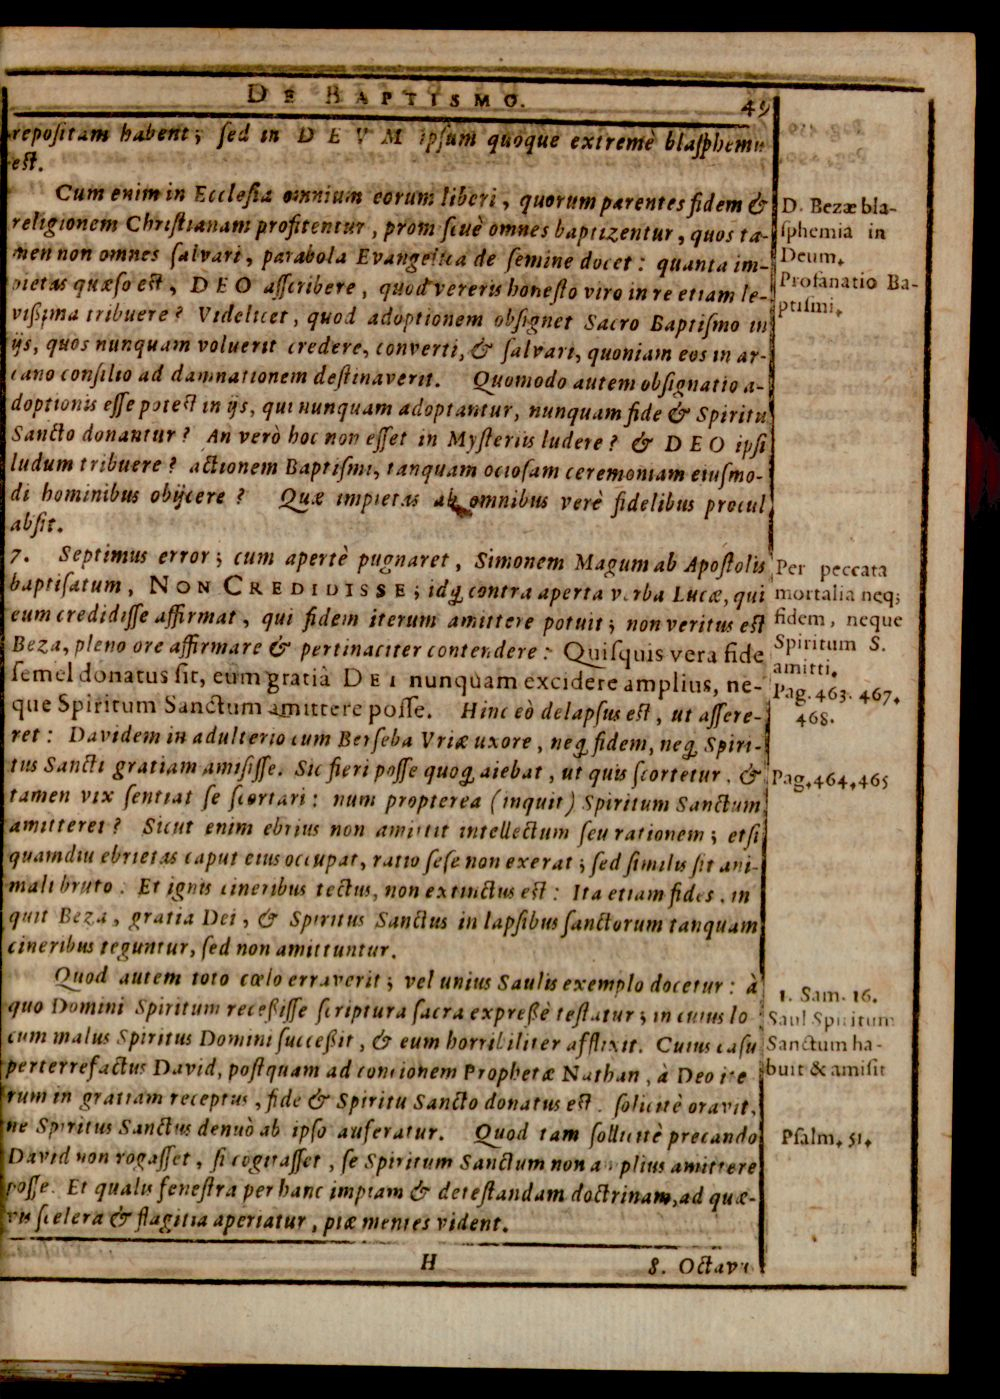 DE BAPTISMO. 49
repositam habent; sed in DEVM ipsum quoque extremè blasphemus
est.
Cum enim in Ecclesia omnium eorum liberi, quorum parentes fidem &
religionem Christianam profitentur, promiscuè omnes baptizentur, quos ta-
men non omnes salvari, parabola Evangelica de semine docet: quanta im-
pietas quæso est, DEO asscribere, quod vereris honesto viro in re etiam le-
vißima tribuere? Videlicet, quod adoptionem obsignet Sacro Baptismo in
ijs, quos nunquam voluerit credere, converti, & salvari, quoniam eos in ar-
cano consilio ad damnationem destinaverit. Quomodo autem obsignatio a-
doptionis esse potest in ijs, qui nunquam adoptantur, nunquam fide & Spiritu
Sancto donantur? An verò hoc non esset in Mysteriis ludere? & DEO ipsi
ludum tribuere? actionem Baptismi, tanquam ociosam ceremoniam eiusmo-
di hominibus obijcere? Quæ impietas ab omnibus verè fidelibus procul
absit.
7. Septimus error; cum apertè pugnaret, Simonem Magum ab Apostolis
baptisatum, NON CREDIDISSE; idq; contra aperta verba Lucæ, qui
eum credidisse affirmat, qui fidem iterum amittere potuit; non veritus est
Beza, pleno ore affirmare & pertinaciter contendere: Quisquis vera fide
semel donatus sit, eum gratià DEI nunquam excidere amplius, ne-
que Spiritum Sanctum amittere posse. Hinc eò delapsus est, ut assere-
ret: Davidem in adulterio cum Berseba Vriæ uxore, neq; fidem, neq; Spiri-
tus Sancti gratiam amisisse. Sic fieri posse quoq; aiebat, ut quis scortetur, &
tamen vix sentiat se scortari: num propterea (inquit) Spiritum Sanctum
amitteret? Sicut enim ebrius non amittit intellectum seu rationem; etsi
quamdiu ebrietas caput eius occupat, ratio sese non exerat; sed similis sit ani-
mali bruto. Et ignis cineribus tectus, non extinctus est: Ita etiam fides, in
quit Beza, gratia Dei, & Spiritus Sanctus in lapsibus sanctorum tanquam
cineribus teguntur, sed non amittuntur.
Quod autem toto cœlo erraverit; vel unius Saulis exemplo docetur: à
quo Domini Spiritum receßisse scriptura sacra expreßè testatur; in cuius lo
cum malus Spiritus Domini succeßit, & eum horribiliter afflixit. Cuius casu
perterrefactus David, postquam ad concionem Prophetæ Nathan, à Deo ite
rum in gratiam receptus, fide & Spiritu Sancto donatus est. solicitè oravit,
ne Spiritus Sanctus denuò ab ipso auferatur. Quod tam sollicitè precando
David non rogasset, si cogitasset, se Spiritum Sanctum non amplius amittere
posse. Et qualis fenestra per hanc impiam & detestandam doctrinam, ad quæ-
vis scelera & flagitia aperiatur, piæ mentes vident.
H 8. Octavu
D. Bezæ bla-
sphemia in
Deum.
Profanatio Ba-
ptismi.
Per peccata
mortalia neq;
fidem, neque
Spiritum S.
amitti.
Pag. 463. 467.
468.
Pag. 464. 465
1. Sam. 16.
Saul Spiritum
Sanctum ha-
buit & amisit
Psalm. 51.